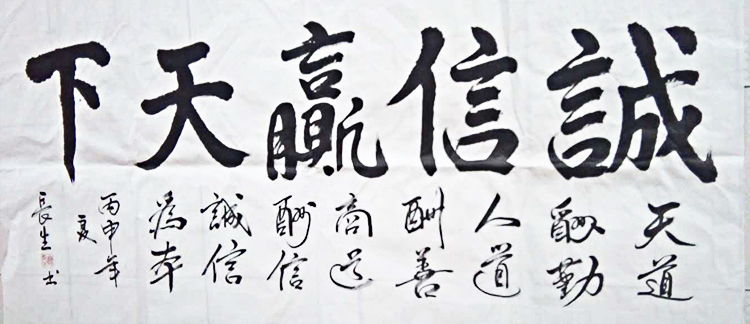 誠信贏天下
天道
酬勤
人道
酬善
商道
酬信
誠信
為本
丙申年
夏
長生
书